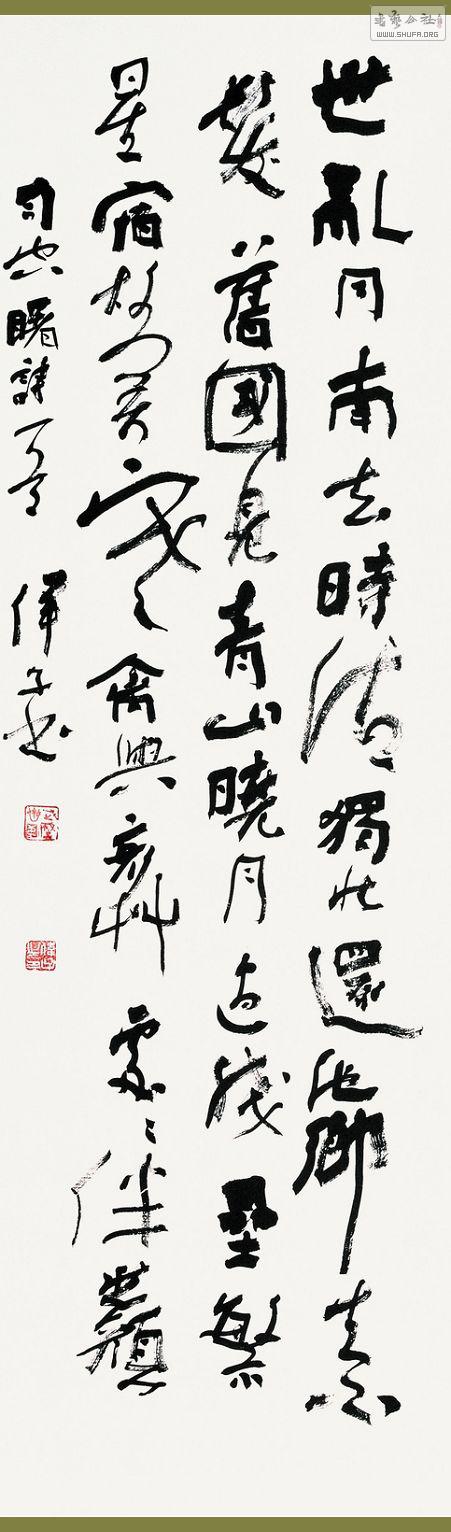 世亂同南去時清獨北還他鄉生白
髮舊國見青山曉月過殘壘繁
星宿故關寒禽與衰草處〻伴愁顏
司空曙詩一首 偉子书
書藝公社
WWW.SHUFA.ORG